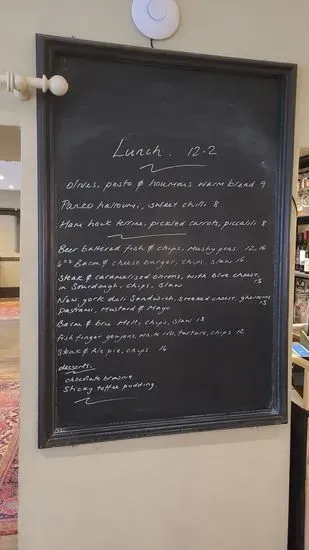 Lunch. 12-2
olives, pesto & houmous, warm bread 9
Panko halloumi, sweet chilli 8
Ham hock terrine, pickled carrots, piccalilli 8
Beer battered fish & chips, Mushy peas. 12, 16
6oz Bacon & cheese burger, chips, slaw 14
Steak & caramalised onions, with blue cheese,
in Sourdough, chips, slaw 15
New york deli Sandwich, smoked cheese, gherkins
Pastrami, Mustard & Mayo 13
Bacon & brie Melt, chips, slaw 13
fish finger goujons, white roll, tartare, chips 12
Steak & Ale pie, chips 16
desserts.
chocolate brownie
Sticky toffee pudding.